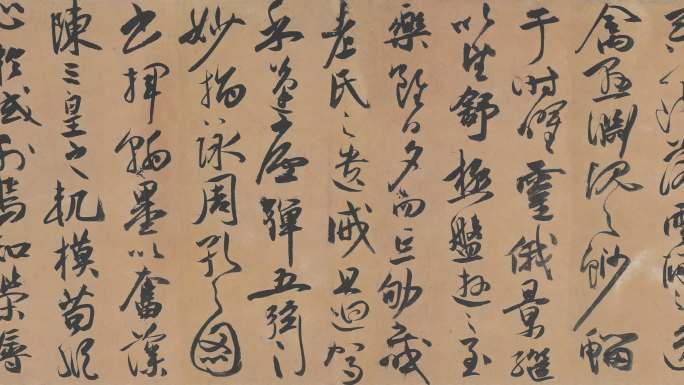 落雲間之逸
禽懸淵沉之魦鰡
于時曜靈俄景繼
以望舒極盤遊之至
樂雖日夕而忘劬感
老氏之遺誡且迴駕
乎蓬廬彈五弦之
妙指詠周孔之圖
書揮翰墨以奮藻
陳三皇之軌模苟縱
心於域外焉知榮辱